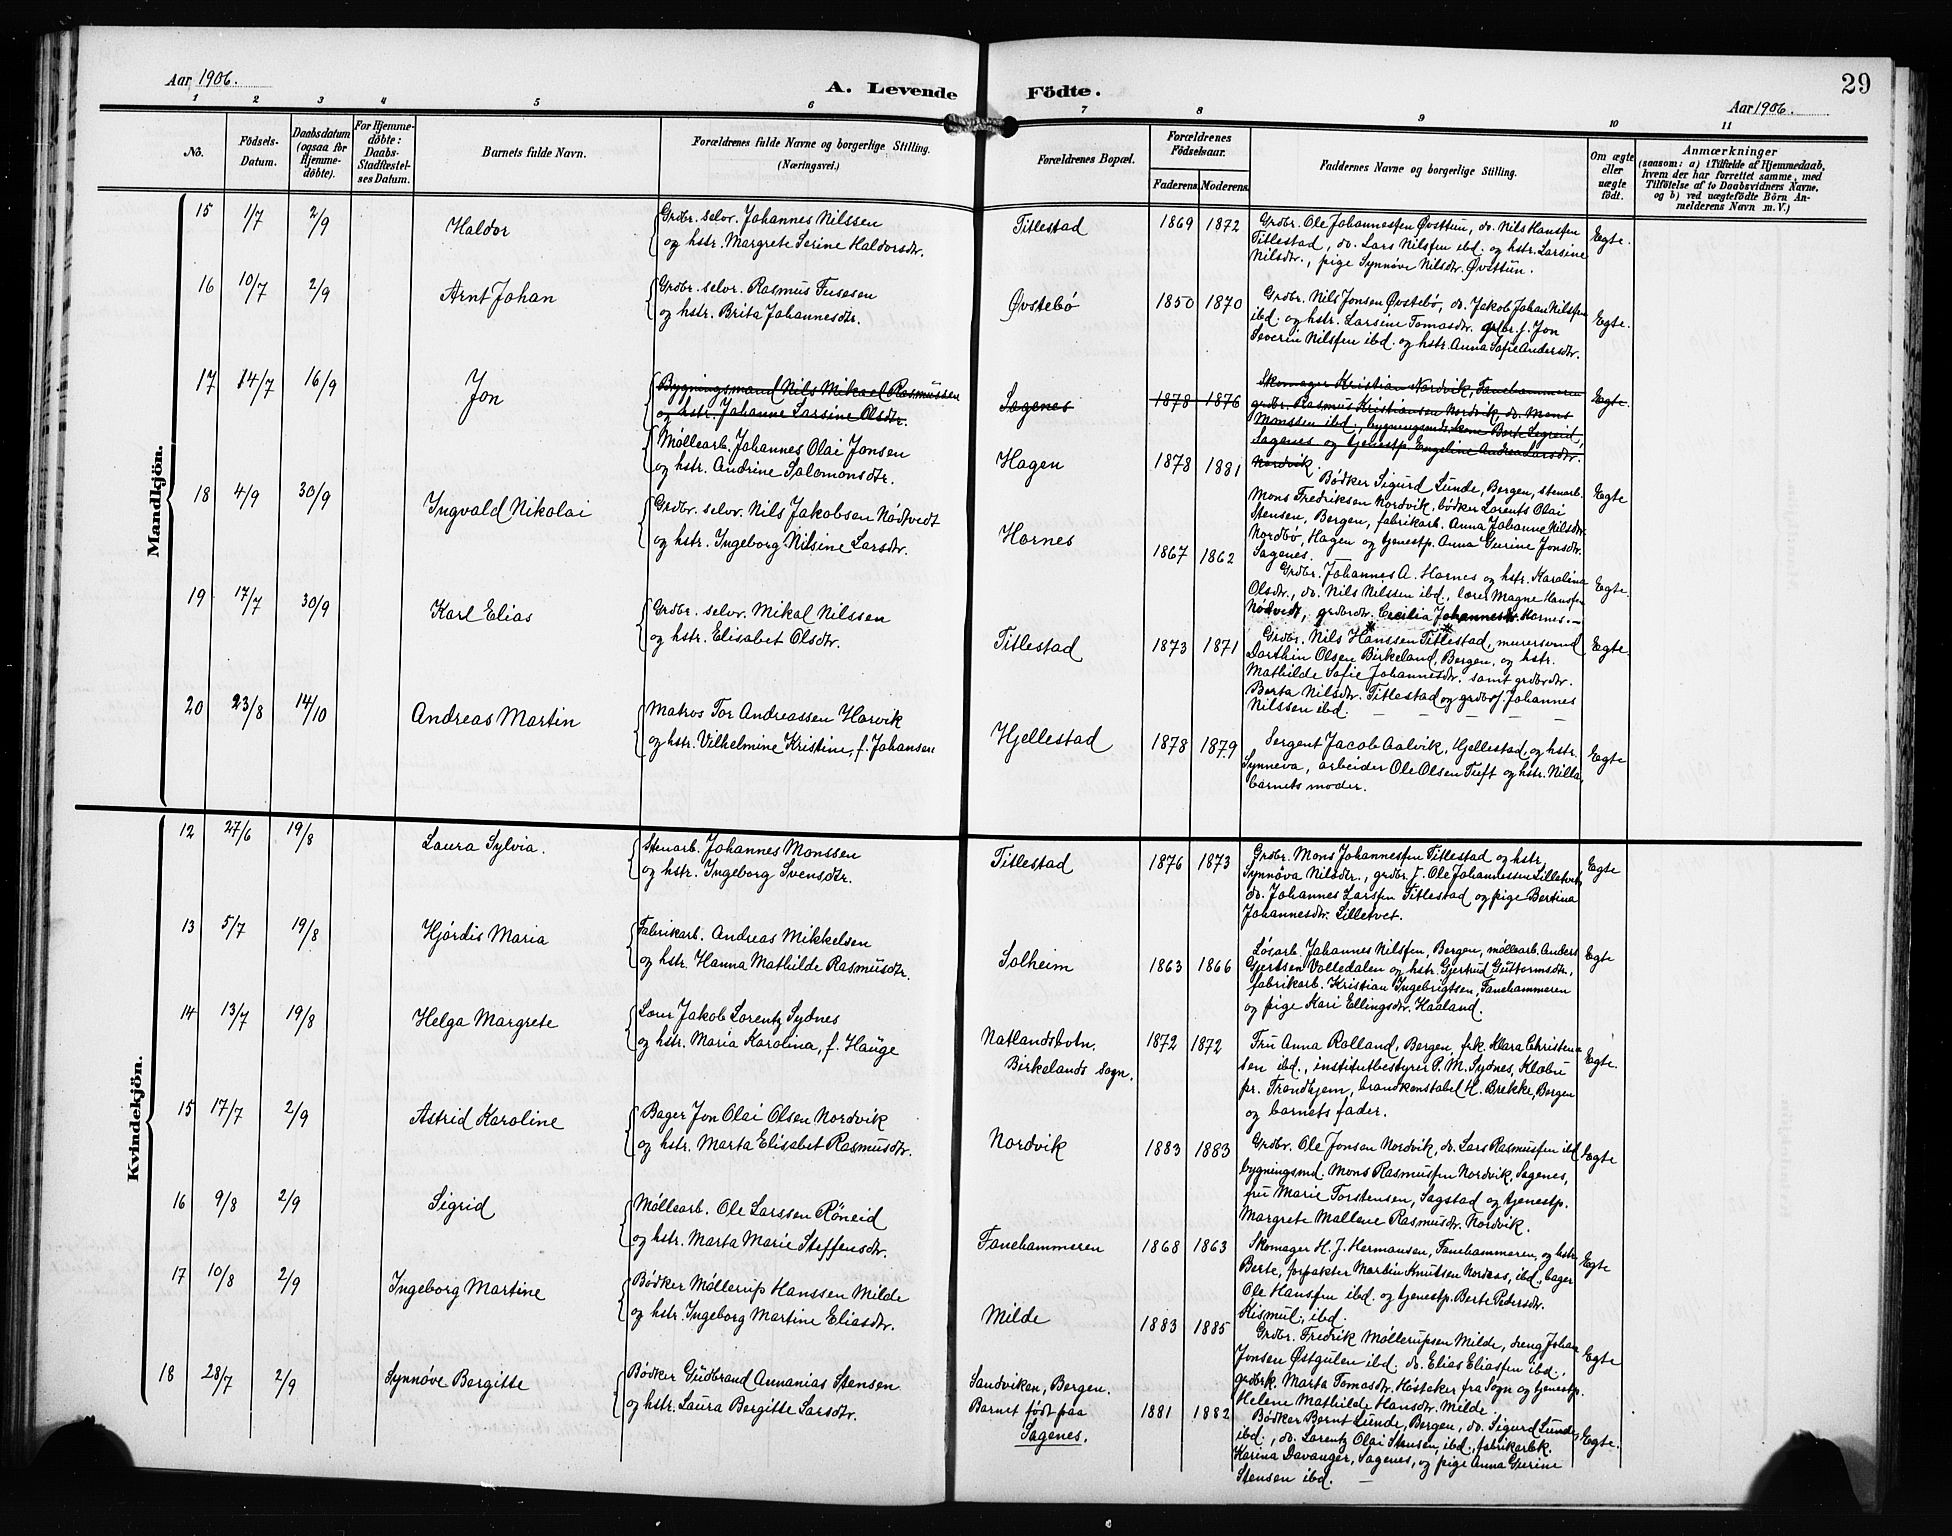 Aar 1906.
A. Levende Födte.
29
Aar 1906.
1 2 3 4 5 6 7 8 9 10 11
No.
Födsels-
Datum.
Daabsdatum
(ogsaa for
Hjemme-
døbte).
For Hjemme-
døbte:
Daabs-
Stadfæstel-
ses Datum.
Barnets fulde Navn.
Forældrenes fulde Navne og borgerlige Stilling.
(Næringsvei.)
Forældrenes Bopæl.
Forældrenes
Födselsaar.
Faderens. Moderens.
Faddernes Navne og borgerlige Stilling.
Om ægte
eller
uægte
födt.
Anmærkninger
(saasom: a) i Tilfælde af Hjemmedaab,
hvem der har forrettet samme, med
Tilföielse af to Daabsvidners Navne,
og b) ved uægtefödte Börn An-
melderens Navn m. V.)
Mandkjön.
15 1/7 2/9 Haldor
Grdbr. selv. Johannes Nilssen
og hstr. Margrete Serine Haldorsdtr.
Titlestad 1869 1872
Grdbr. Ole Johannessen Øvsttun, do. Nils Hanssen
Titlestad, do. Lars Nilssen ibd. og hstr. Larsine
Nilsdtr., pige Synnöve Nilsdtr. Øvsttun.
Egte.
16 10/7 2/9 Arnt Johan
Grdbr. selv. Rasmus Tusesen
og hstr. Brita Johannesdtr.
Øvstebö 1850 1870
Grdbr. Nils Jonsen Øvstebö, do. Jakob Johan Nilssen
ibd. og hstr. Larsine Tomasdtr. grdbr. f. Jon
Severin Nilssen ibd. og hstr. Anna Sofie Andersdtr.
Egte.
17 14/7 16/9 Jon
Bygningsmand Nils Mikael Rasmussen
og hstr. Johanne Larsine Olsdtr.
Sagenes 1878 1876
Skomager Kristian Nordvik, Fanehammeren
grdbr. Rasmus Kristiansen Nordvik, do. Mons
Monssen ibd., bygningsmds. kone Berte Legreid,
Sagenes og tjenestp. Engeline Andrea Larsdtr.
Nordvik.
Egte.
Möllearb. Johannes Olai Jonsen
og hstr. Andrine Salomonsdtr.
Hagen 1878 1881
Bødker Sigurd Lunde, Bergen, stenarb.
Mons Fredriksen Nordvik, bödker Lorents Olai
Stensen, Bergen, fabrikarb. Anna Johanne Nilsdtr.
Nordbö, Hagen og tjenestp. Anna Gurine Jonsdtr.
Sagenes.
Egte
18 4/9 30/9 Ingvald Nikolai
Grdbr. selv. Nils Jakobsen Nödtvedt
og hstr. Ingeborg Nilsine Larsdtr.
Hornes
1867 1862
Grdbr. Johannes A. Hornes og hstr. Karolina
Olsdtr., do. Nils Nilssen ibd., lærer Magne Hanssen
Nödtvedt, grdbrdtr. Cecilia Johannesdtr. Hornes.—
Egte.
19 17/7 30/9 Karl Elias
Grdbr. selv. Mikal Nilssen
og hstr. Elisabet Olsdtr.
Titlestad 1873 1871
Grdbr. Nils Hanssen Titlestad, murersvend
Dorthin Olsen Birkeland, Bergen, og hstr.
Mathilde Sofie Johannesdtr. samt grdbrdtr.
Berta Nilsdtr. Titlestad og grdbrs. Johannes
Nilssen ibd.
Egte.
20 23/8 14/10 Andreas Martin
Matros Tor Andreassen Harvik
og hstr. Vilhelmine Kristine, f. Johansen
Hjellestad 1878 1879
Sergent Jacob Aalvik, Hjellestad, og hstr.
Synneva, arbeider Ole Olsen Tuft og hstr. Nilla,
barnets moder.
Egte
Kvindekjön.
12 27/6 19/8 Laura Sylvia.
Stenarb. Johannes Monssen
og hstr. Ingeborg Svensdtr.
Titlestad 1876 1873
Grdbr. Mons Johannessen Titlestad og hstr.
Synnöva Nilsdtr., grdbr. f. Ole Johannessen Lilletvet,
do. Johannes Larssen Titlestad og pige Bertina
Johannesdtr. Lilletvet.
Egte
13 5/7 19/8 Hjördis Maria
Fabrikarb. Andreas Mikkelsen
og hstr. Hanna Mathilde Rasmusdtr.
Solheim 1863 1866
Lösarb. Johannes Nilssen, Bergen, möllearb. Anders
Gjertsen Volledalen og hstr. Gjertrud Guttormsdtr.,
fabrikarb. Kristian Ingebrigtsen, Fanehammeren
og pige Kari Ellingsdtr. Haaland.
Egte
14 13/7 19/8 Helga Margrete
Lærer Jakob Lorentz Sydnes
og hstr. Maria Karolina, f. Hauge
Natlandsbotn. 1872 1872
Birkelands sogn.
Fru Anna Rolland, Bergen, frk. Klara Christen-
sen ibd., institutbestyrer P. M. Sydnes, Klæbu
pr. Trondhjem, brandkonstabel H. Brekke, Bergen
og barnets fader.
Egte.
15 17/7 2/9 Astrid Karoline
Bager Jon Olai Olsen Nordvik
og hstr. Marta Elisabet Rasmusdtr.
Nordvik 1883 1883
Grdbr. Ole Jonsen Nordvik, do. Lars Rasmussen ibd
bygningsmd. Mons Rasmussen Nordvik, Sagenes,
fru Marie Torstensen, Sagstad og tjenestp.
Margrete Mallene Rasmusdtr. Nordvik.
Egte
16 9/8 2/9 Sigrid
Möllearb. Ole Larssen Röneid
og hstr. Marta Marie Steffensdtr.
Fanehammeren 1868 1863
Skomager H. J. Hermansen, Fanehammeren, og hstr
Berte, forpakter Martin Knutsen Nordaas, ibd., bager
Ole Hanssen ibd. og tjenestp. Berte Pedersdtr.
Kismul, ibd.
Egte
17 10/8 2/9 Ingeborg Martine
Bödker Möllerup Hanssen Milde
og hstr. Ingeborg Martine Eliasdtr.
Milde 1883 1885
Grdbr. Fredrik Möllerupsen Milde, dreng Johan
Jonsen Østgulen ibd. do. Elias Eliassen ibd.,
grdbrk. Marta Tomasdtr. Höstaker fra Sogn og tjenestp.
Helene Mathilde Hansdtr. Milde.
Egte
18 28/7 2/9 Synnöve Bergitte
Bödker Gudbrand Annanias Stensen
og hstr. Laura Bergitte Larsdtr.
Sandviken, Bergen.
Barnet födt paa
Sagenes.
1881 1882
Bödker Bernt Lunde, Bergen, do. Sigurd Lunde,
ibd., do. Lorentz Olai Stensen, ibd., fabrikarbk.
Karina Davanger, Sagenes, og pige Anna Gurine
Stensen ibd. —
Egte.